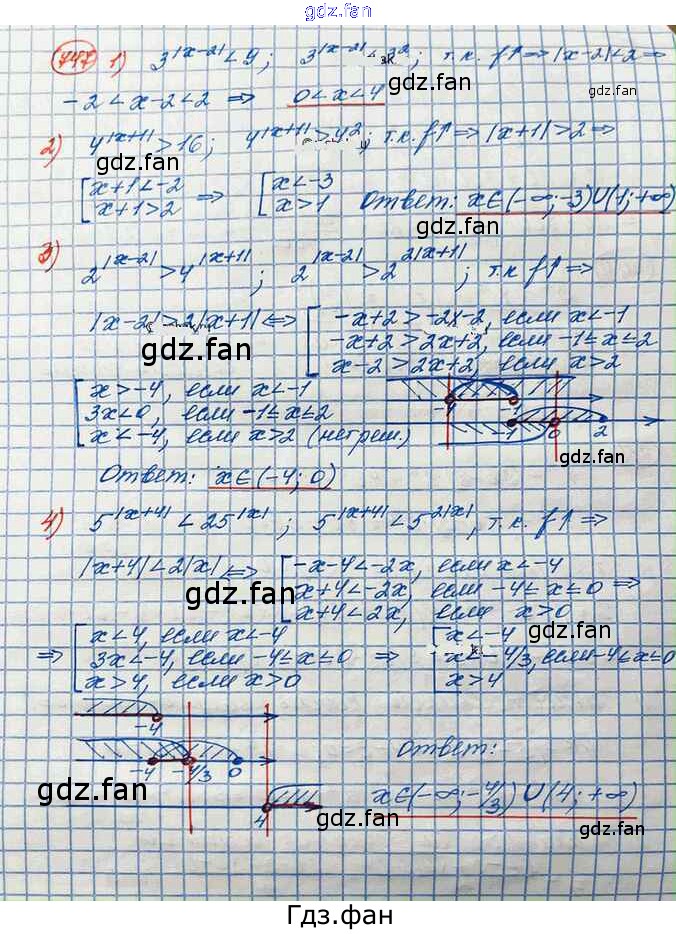 gdz.fan
747 1) 3^|x-2| < 9; 3^|x-2| < 3^2; т.к. f↑ ⇒ |x-2| < 2 ⇒
gdz.fan
-2 < x-2 < 2 ⇒ 0 < x < 4
gdz.fan
2) 4^|x+1| > 16; 4^|x+1| > 4^2; т.к. f↑ ⇒ |x+1| > 2 ⇒
gdz.fan
[ x+1 < -2 ⇒ [ x < -3 Ответ: x∈(-∞; -3)∪(1; +∞)
x+1 > 2 x > 1
gdz.fan
3) 2^|x-2| > 4^|x+1|; 2^|x-2| > 2^2|x+1|; т.к f↑ ⇒
|x-2| > 2|x+1| ⇔ [ -x+2 > -2x-2, если x < -1
gdz.fan
-x+2 > 2x+2, если -1 ≤ x ≤ 2
gdz.fan
x-2 > 2x+2, если x > 2
[ x > -4, если x < -1
3x < 0, если -1 ≤ x ≤ 2
x < -4, если x > 2 (нет реш.)
-4 -1
-1 0 2
gdz.fan
Ответ: x∈(-4; 0)
gdz.fan
4) 5^|x+4| < 25^|x|; 5^|x+4| < 5^2|x|, т.к. f↑ ⇒
|x+4| < 2|x| ⇔ [ -x-4 < -2x, если x < -4
x+4 < -2x, если -4 ≤ x ≤ 0 ⇒
gdz.fan
x+4 < 2x, если x > 0
gdz.fan
⇒ [ x < 4, если x < -4
3x < -4, если -4 ≤ x ≤ 0 ⇒
x > 4, если x > 0
[ x < -4
x < -4/3, если -4 ≤ x ≤ 0
x > 4
-4
-4 -4/3 0
4
Ответ:
gdz.fan
x∈(-∞; -4/3)∪(4; +∞)
gdz.fan
gdz.fan
Гдз.фан